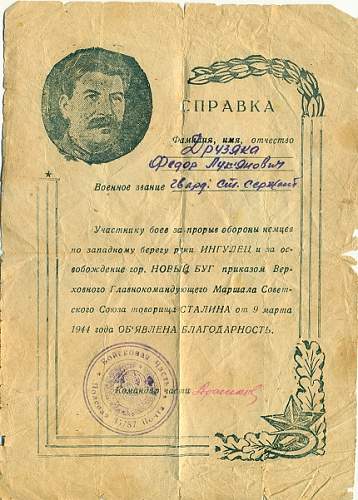 СПРАВКА
Фамилия, имя, отчество
Друзяка
Федор Лукянович
Военное звание Гвард. Ст. Сержант
Участнику боев за прорыв обороны немцев
по западному берегу реки ИНГУЛЕЦ и за ос-
вобождение гор. НОВЫЙ БУГ приказом Вер-
ховного Главнокомандующего Маршала Совет-
ского Союза товарища СТАЛИНА от 9 марта
1944 года ОБ'ЯВЛЕНА БЛАГОДАРНОСТЬ.
Войсковая Часть
Полевая Почта
Командир части